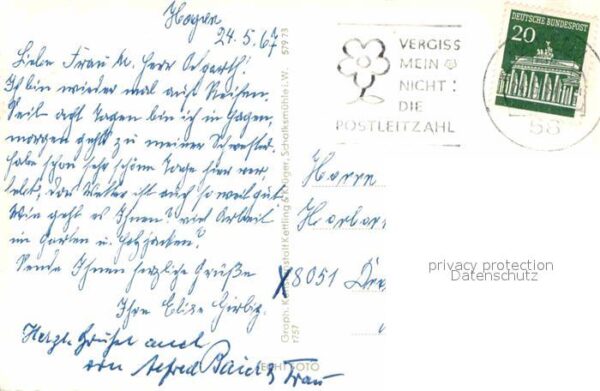 Hagen
24.5.67
Liebe Frau u. Herr
Ich bin wieder mal auf Reisen.
Seit acht Tagen bin ich in Hagen,
morgen geht's zu meiner Schwester.
habe schon sehr schöne Tage hier ver-
lebt, das Wetter ist auch so weit gut.
Wie geht es Ihnen? viel Arbeit
im Garten u.
Sende Ihnen herzliche Grüße
Ihre Elise
Herzl. Grüße auch
von Alfred u. Frau
Graph. Kunstanstalt Kettling & Krüger, Schalksmühle i. W. 579 73
1757
ECHT FOTO
VERGISS
MEIN
NICHT:
DIE
POSTLEITZAHL
DEUTSCHE BUNDESPOST
20
58
Herrn
X8051
privacy protection
Datenschutz